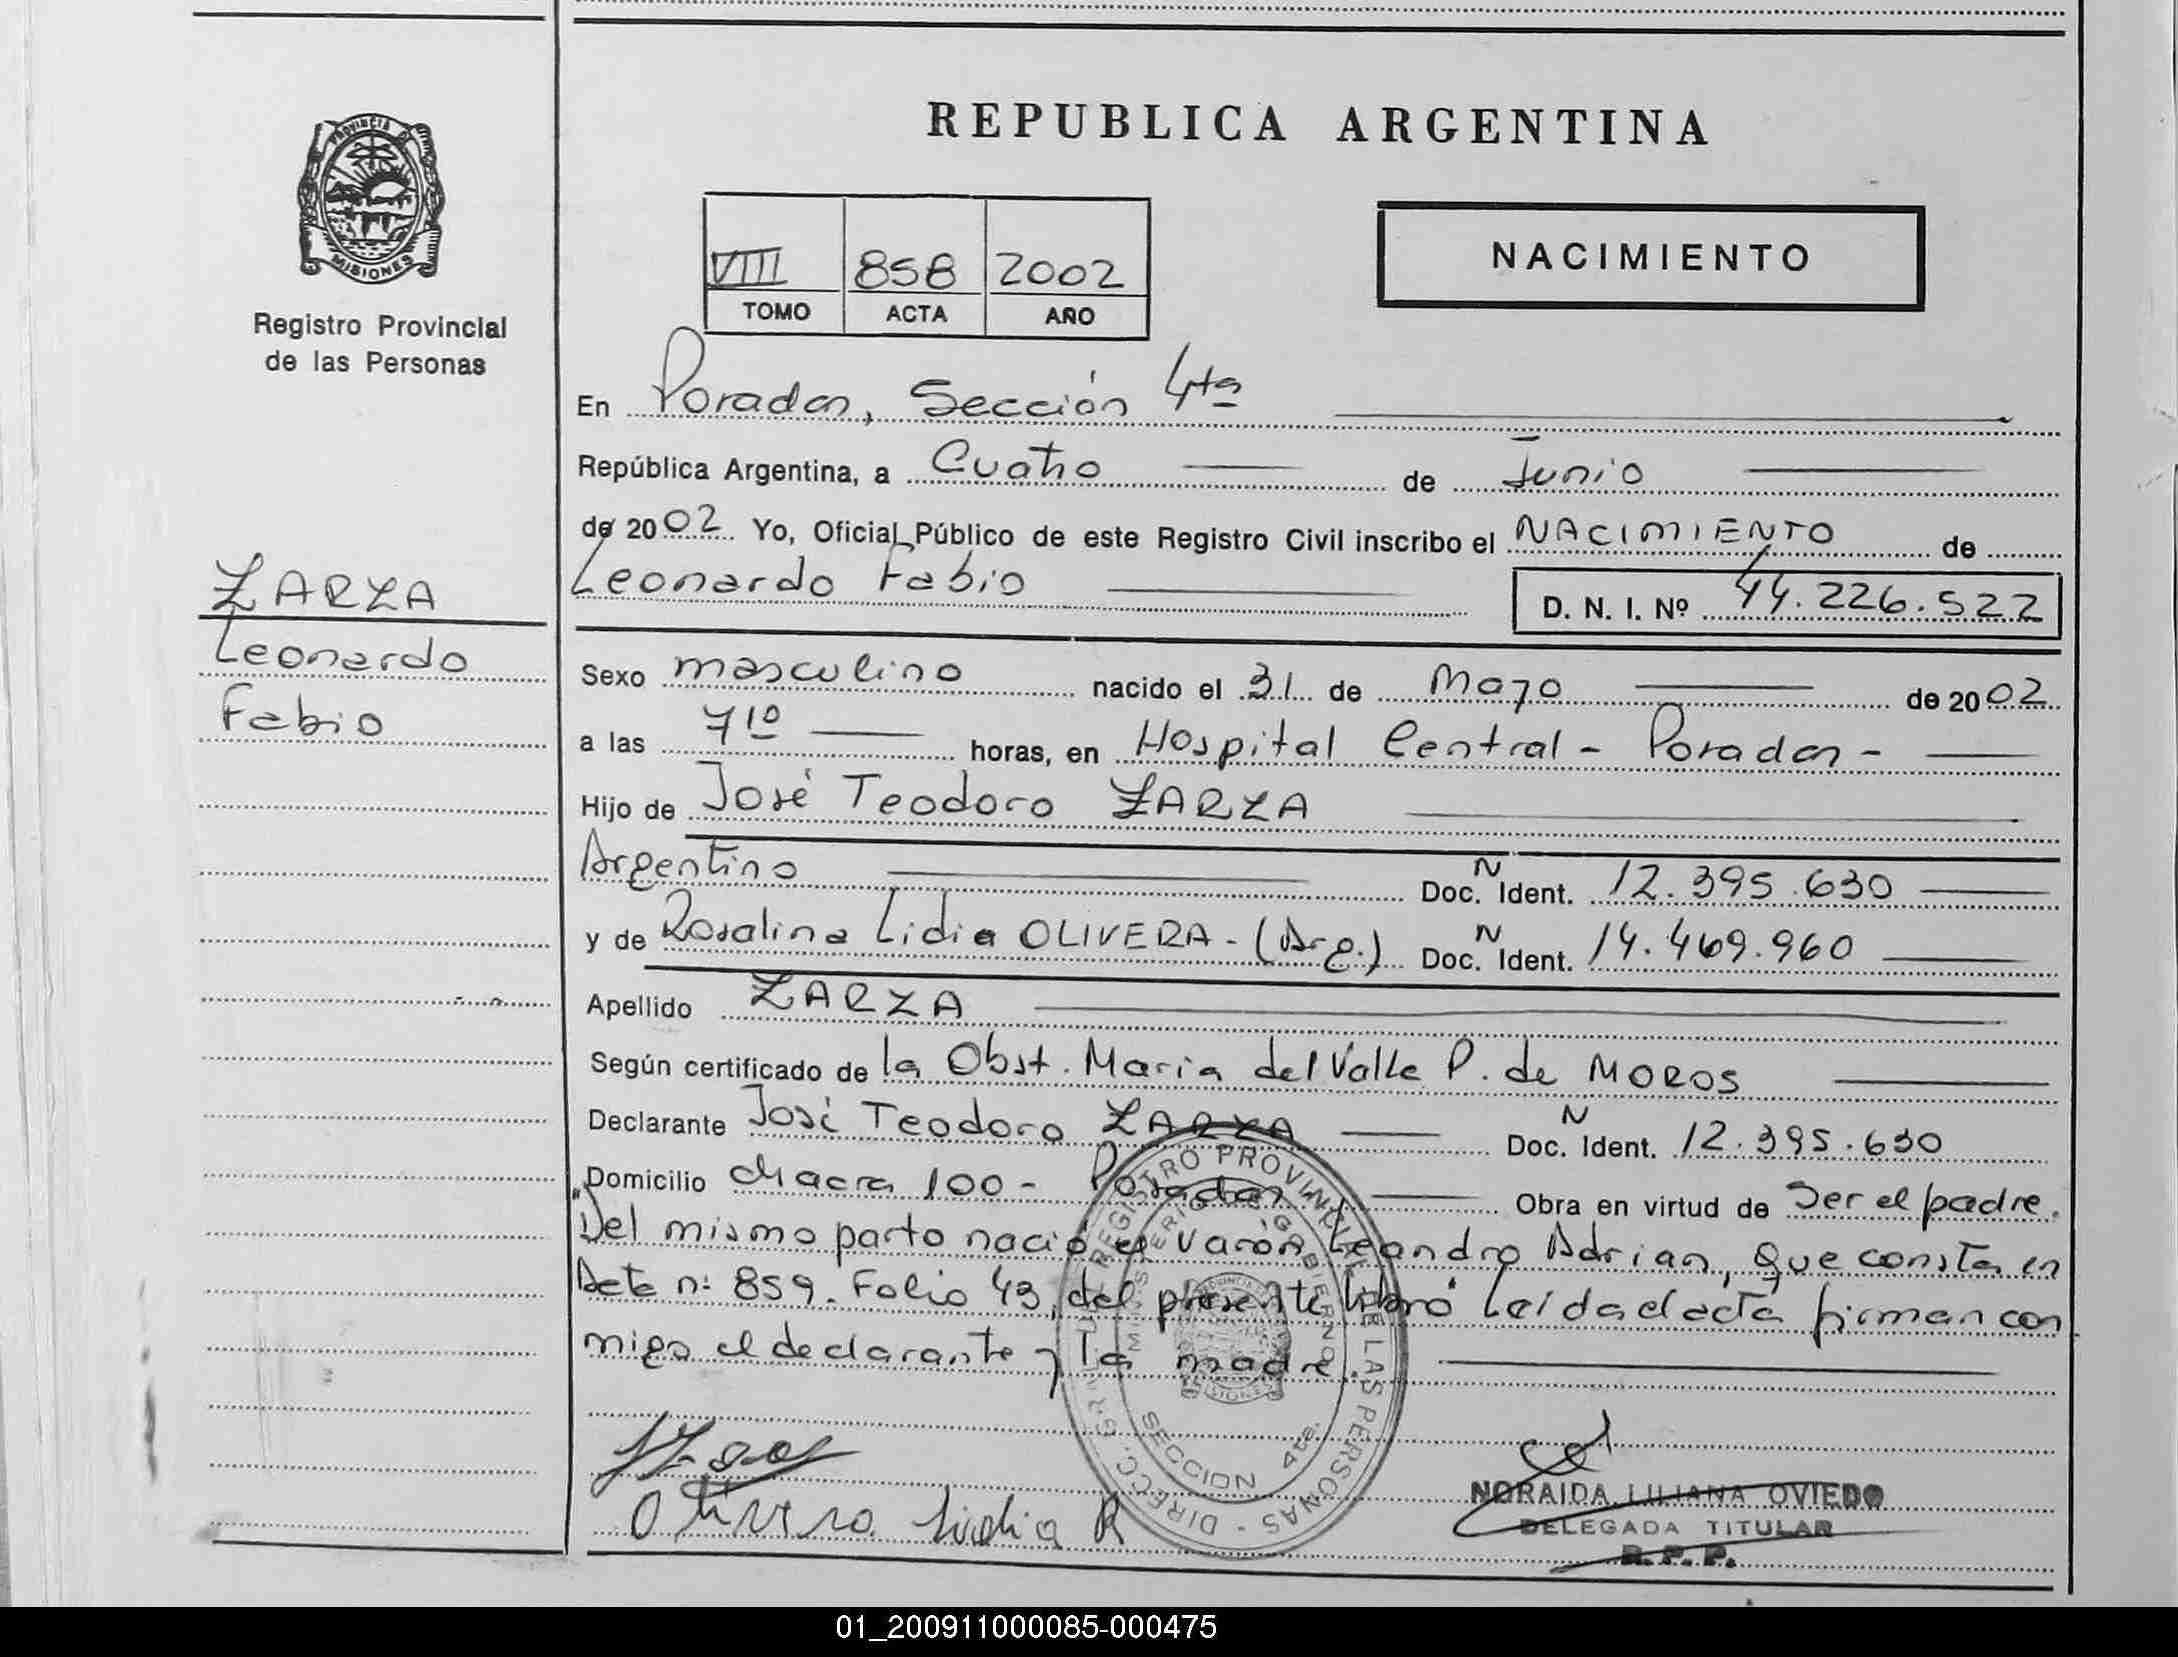 REPUBLICA ARGENTINA
PROVINCIA DE
MISIONES
Registro Provincial
de las Personas
VIII 858 2002
TOMO ACTA AÑO
NACIMIENTO
En Posadas, Sección 4ta
República Argentina, a Cuatro de Junio
de 2002 Yo, Oficial Público de este Registro Civil inscribo el NACIMIENTO de
Leonardo Fabio D. N. I. Nº 44.226.522
ZARZA
Leonardo
Fabio
Sexo masculino nacido el 31 de Mayo de 2002
a las 7 10 horas, en Hospital Central - Posadas -
Hijo de José Teodoro ZARZA
Argentino N Doc. Ident. 12.395.630
y de Rosalina Lidia OLIVERA - (Arg.) N Doc. Ident. 14.469.960
Apellido ZARZA
Según certificado de la Obst. Maria del Valle P. de MOROS
Declarante José Teodoro ZARZA N Doc. Ident. 12.395.630
Domicilio chacra 100 - Posadas Obra en virtud de Ser el padre.
"Del mismo parto nació el varón Leandro Adrian, que consta en
Acta nº 859. Folio 43, del presente libro Leída el acta firman con
migo el declarante y la madre.
DIRECC. GRAL. DEL REGISTRO PROVINCIAL DE LAS PERSONAS
MINISTERIO DE GOBIERNO
SECCION 4ta.
Olivera Lidia R
NORAIDA LILIANA OVIEDO
DELEGADA TITULAR
R. P. P.
01_200911000085-000475